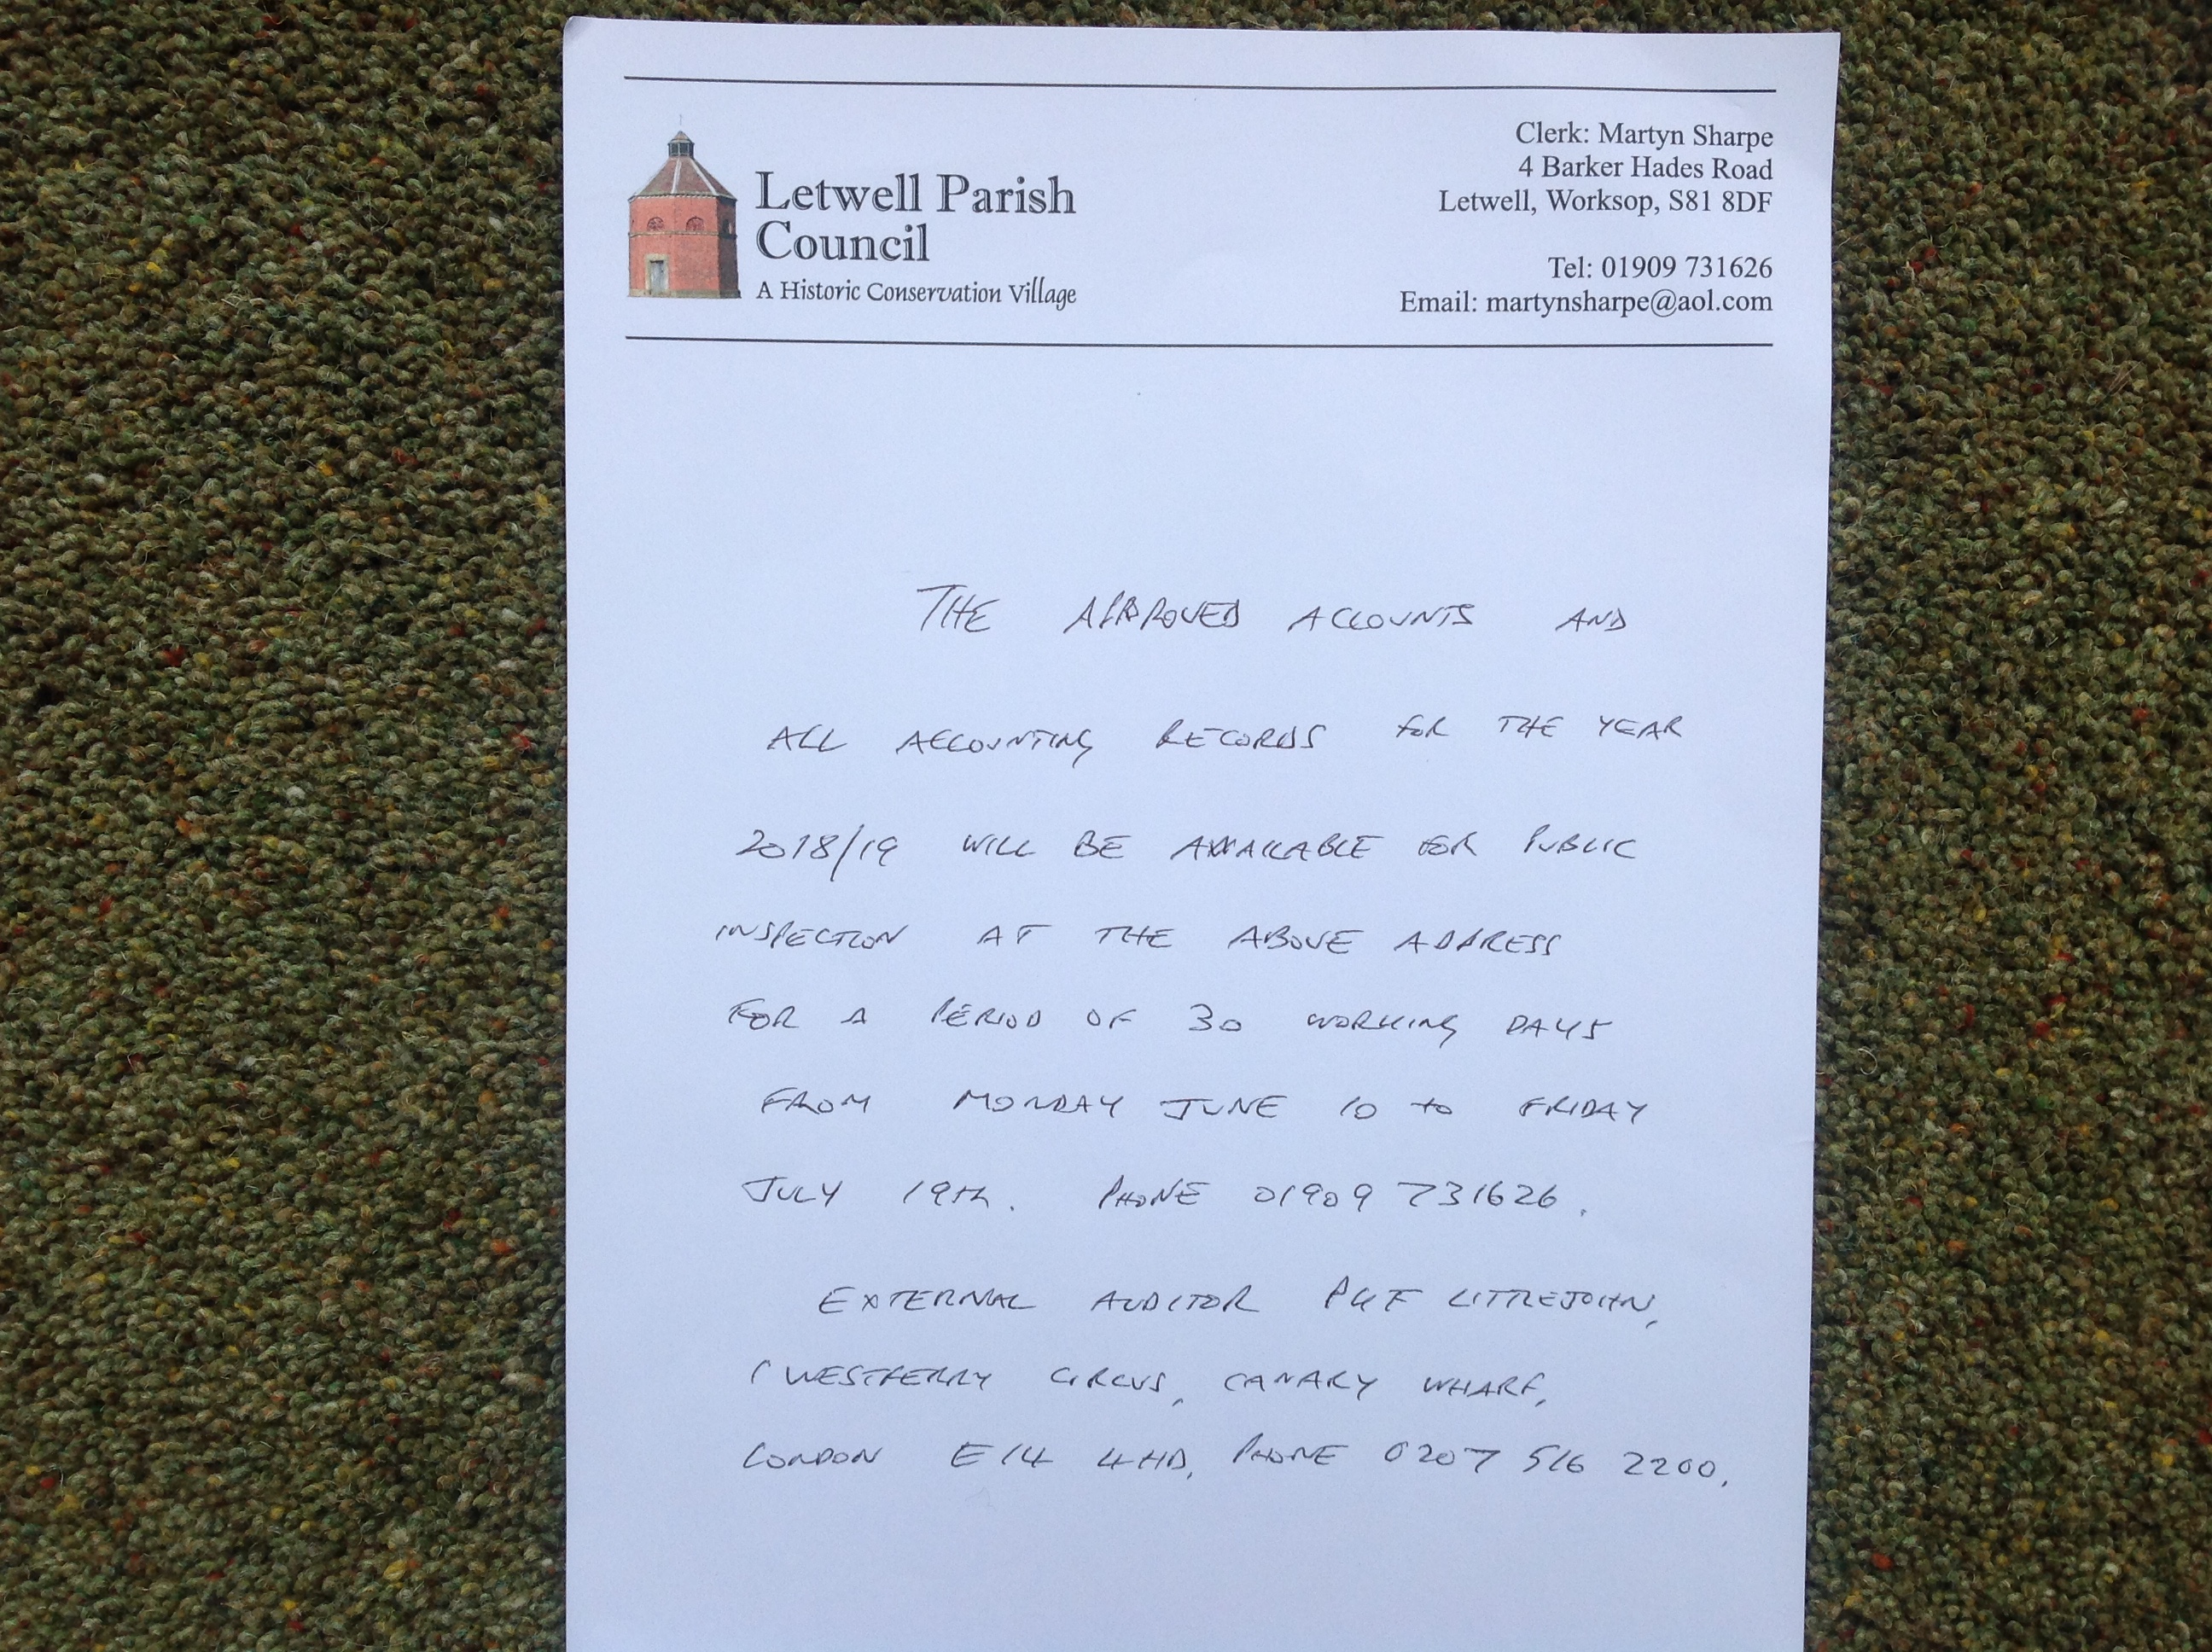 Letwell Parish
Council
A Historic Conservation Village
Clerk: Martyn Sharpe
4 Barker Hades Road
Letwell, Worksop, S81 8DF
Tel: 01909 731626
Email: martynsharpe@aol.com
THE APPROVED ACCOUNTS AND
ALL ACCOUNTING RECORDS FOR THE YEAR
2018/19 WILL BE AVAILABLE FOR PUBLIC
INSPECTION AT THE ABOVE ADDRESS
FOR A PERIOD OF 30 WORKING DAYS
FROM MONDAY JUNE 10 to FRIDAY
JULY 19th. PHONE 01909 731626.
EXTERNAL AUDITOR PKF LITTLEJOHN,
1 WESTFERRY CIRCUS, CANARY WHARF,
LONDON E14 4HD, PHONE 0207 516 2200.